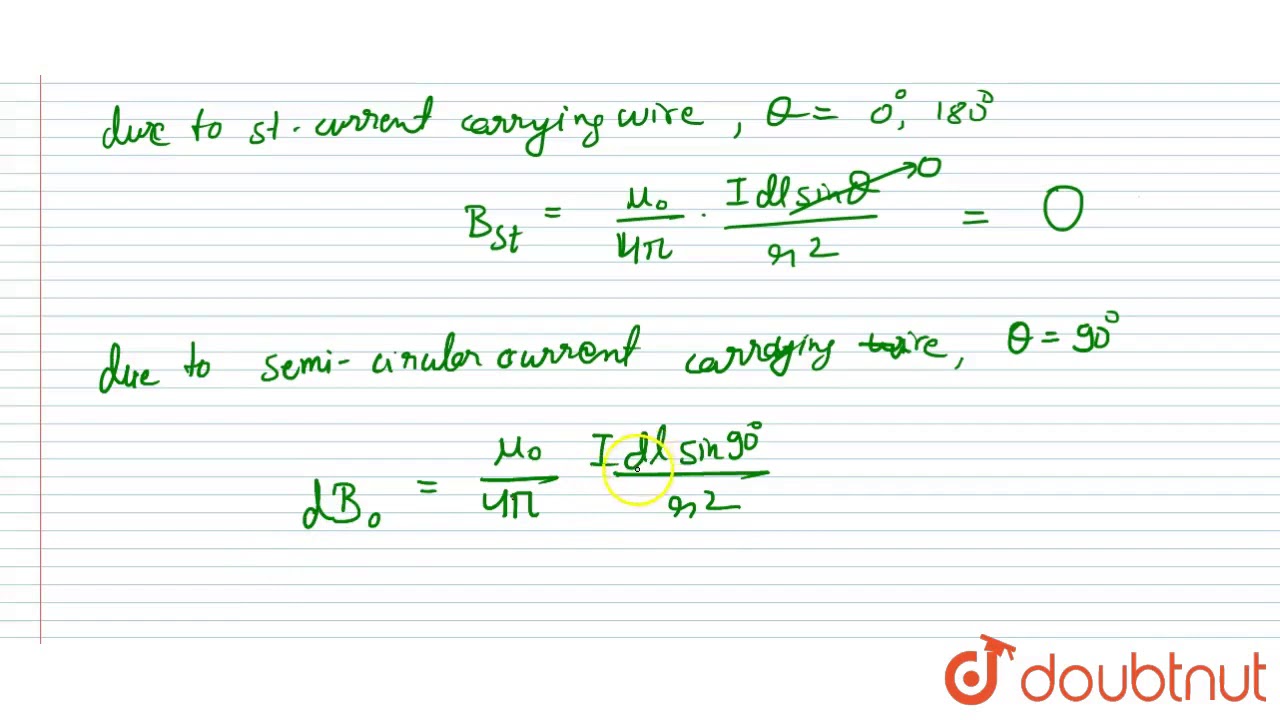 due to st. current carrying wire, θ = 0°, 180°
B_st = μ₀/4π · I dl sinθ/r² = 0
→ 0
due to semi-circular current carrying wire, θ = 90°
dB₀ = μ₀/4π I dl sin 90°/r²
doubtnut